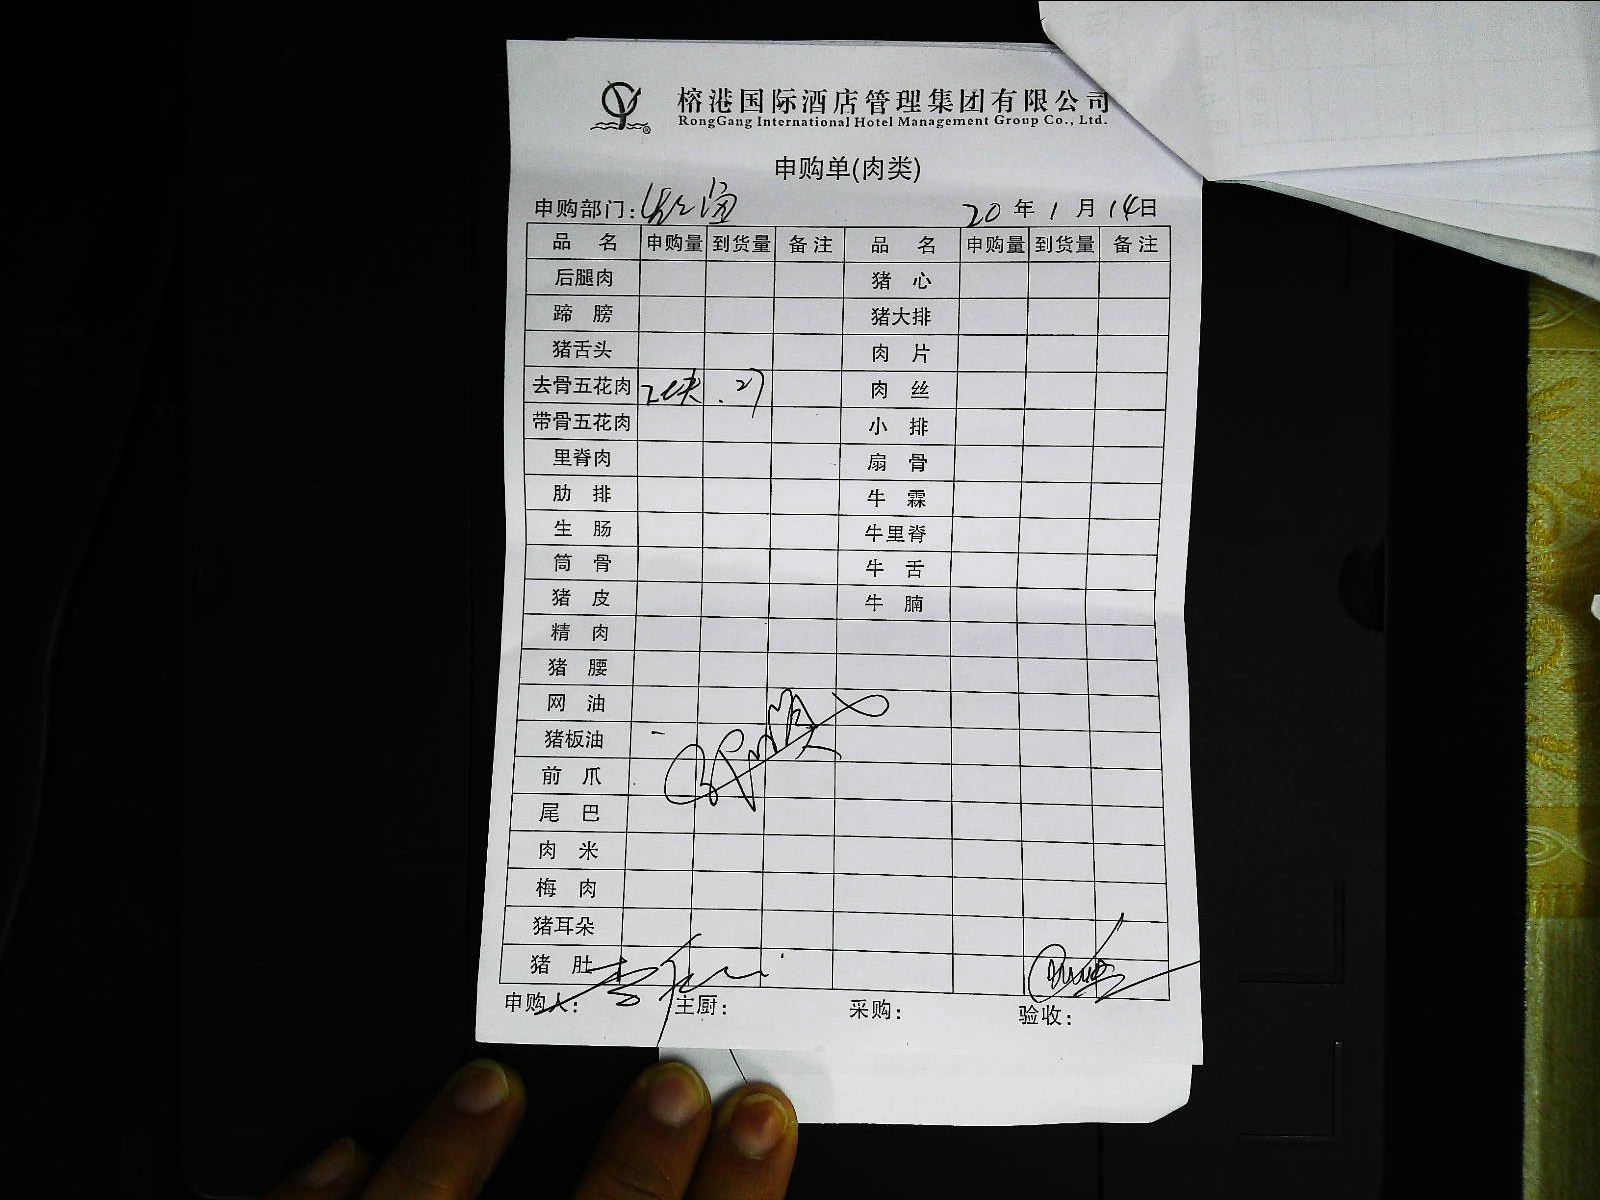 榕港国际酒店管理集团有限公司
RongGang International Hotel Management Group Co., Ltd.
申购单(肉类)
申购部门: 20 年 1 月 14 日
品 名 申购量 到货量 备注 品 名 申购量 到货量 备注
后腿肉 猪 心
蹄 膀 猪大排
猪舌头 肉 片
去骨五花肉 2块 27 肉 丝
带骨五花肉 小 排
里脊肉 扇 骨
肋 排 牛 霖
生 肠 牛里脊
筒 骨 牛 舌
猪 皮 牛 腩
精 肉
猪 腰
网 油
猪板油
前 爪
尾 巴
肉 米
梅 肉
猪耳朵
猪 肚
申购人: 主厨: 采购: 验收: